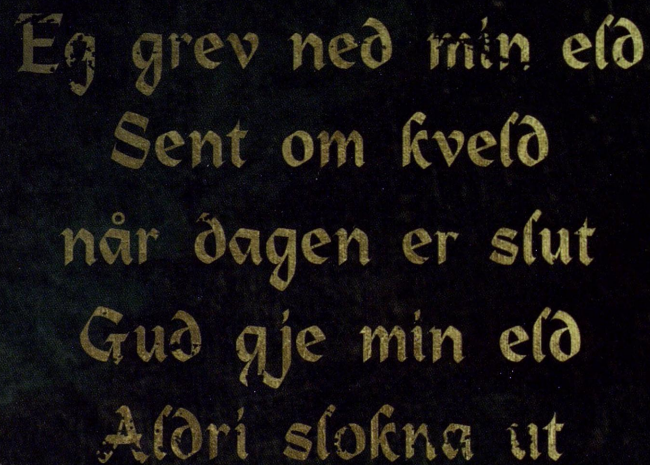 Eg grev ned min eld
Sent om kveld
når dagen er slut
Gud gje min eld
Aldri slokna ut